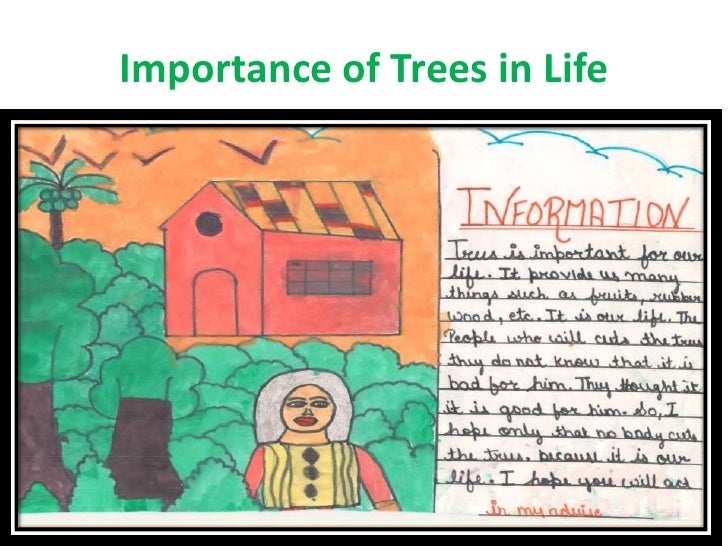 Importance of Trees in Life
INFORMATION
Trus is important for our
life. It provide us many
things such as fruits, rubber
wood, etc. It is our life. The
People who will cuts the trus
they do not know that it is
bad for him. They thought it
it is good for him. So, I
hope only that no body cuts
the trus. because it is our
life. I hope you will act
in my advise